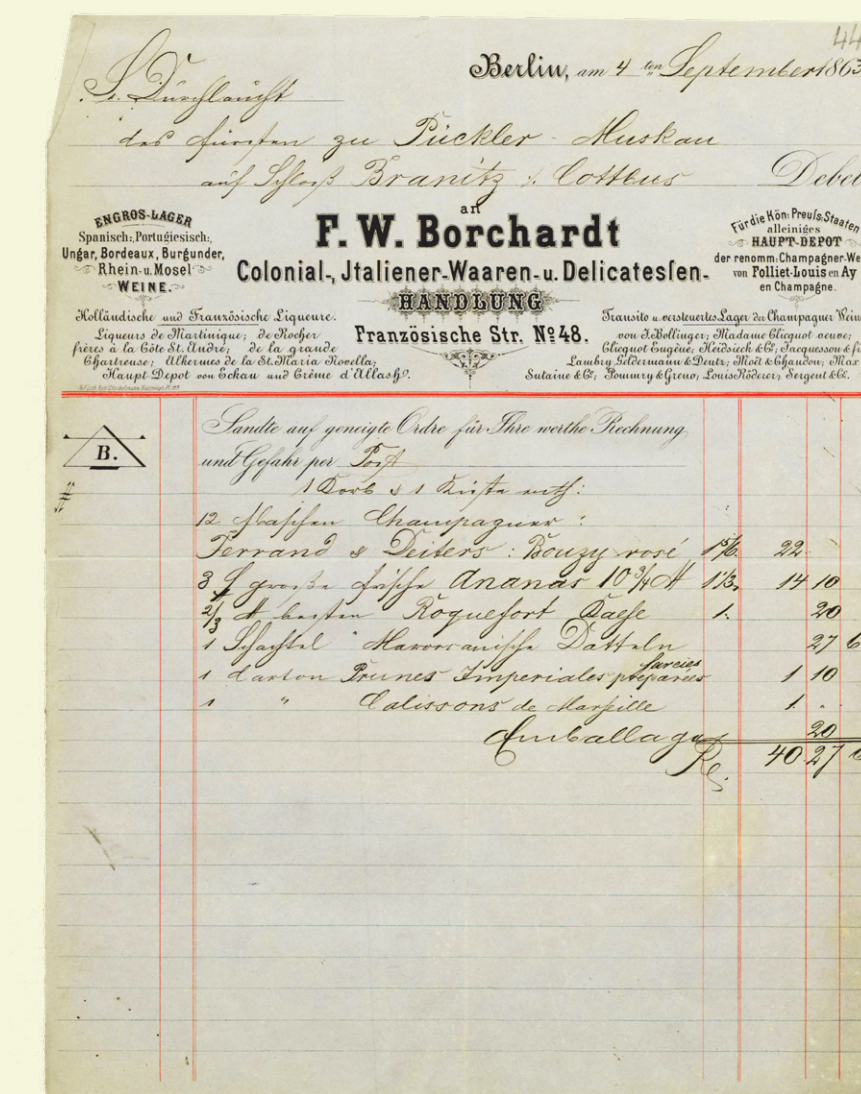 44
Berlin, am 4 ten September 1863
Sr. Durchlaucht
des Fürsten zu Pückler-Muskau
auf Schloß Branitz /. Cottbus
Debet
an
ENGROS-LAGER
Spanisch:, Portugiesisch:,
Ungar, Bordeaux, Burgunder,
Rhein- u. Mosel
WEINE.
Holländische und Französische Liqueure.
Liqueurs de Martinique; de Rocher
frères à la Côte St. André; de la grande
Chartreuse; Alkermes de la St. Maria Novella;
Haupt Depot von Eckau und Crême d'Allasch.
F. W. Borchardt
Colonial-, Jtaliener-Waaren- u. Delicatessen-
HANDLUNG
Französische Str. No 48.
Für die Kön: Preuß: Staaten
alleiniges
HAUPT-DEPOT
der renomm: Champagner-We
von Folliet-Louis en Ay
en Champagne.
Transito u. versteuertes Lager der Champagner Wein
von J. Bollinger; Madame Clicquot veuve;
Clicquot Eugène; Heidsieck & Co; Jacquesson & fi
Lambry Geldermann & Deutz; Moët & Chandon; Max
Sutaine & Co; Pommery & Greno; Louis Röderer; Sergent & Co.
B.
Sandte auf geneigte Ordre für Ihre werthe Rechnung
und Gefahr per Post
1 Korb & 1 Kiste enth:
12 Flaschen Champagner :
Ferrand & Deiters : Bouzy rosé 1 5/6 22
3 große frische Ananas 10 3/4 1 1/3 14 10
2/3 besten Roquefort Kaese 1. 20
1 Schachtel Maroccanische Datteln 27 6
1 Carton Prunes Imperiales farcies préparées 1 10
1 " Calissons de Marseille 1 .
Emballage 20
40 27 6